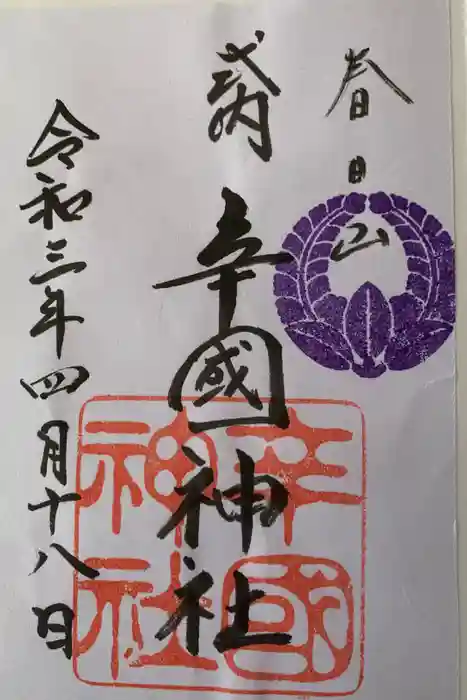 春日山
式内
辛國神社
令和三年四月十八日
辛國神社